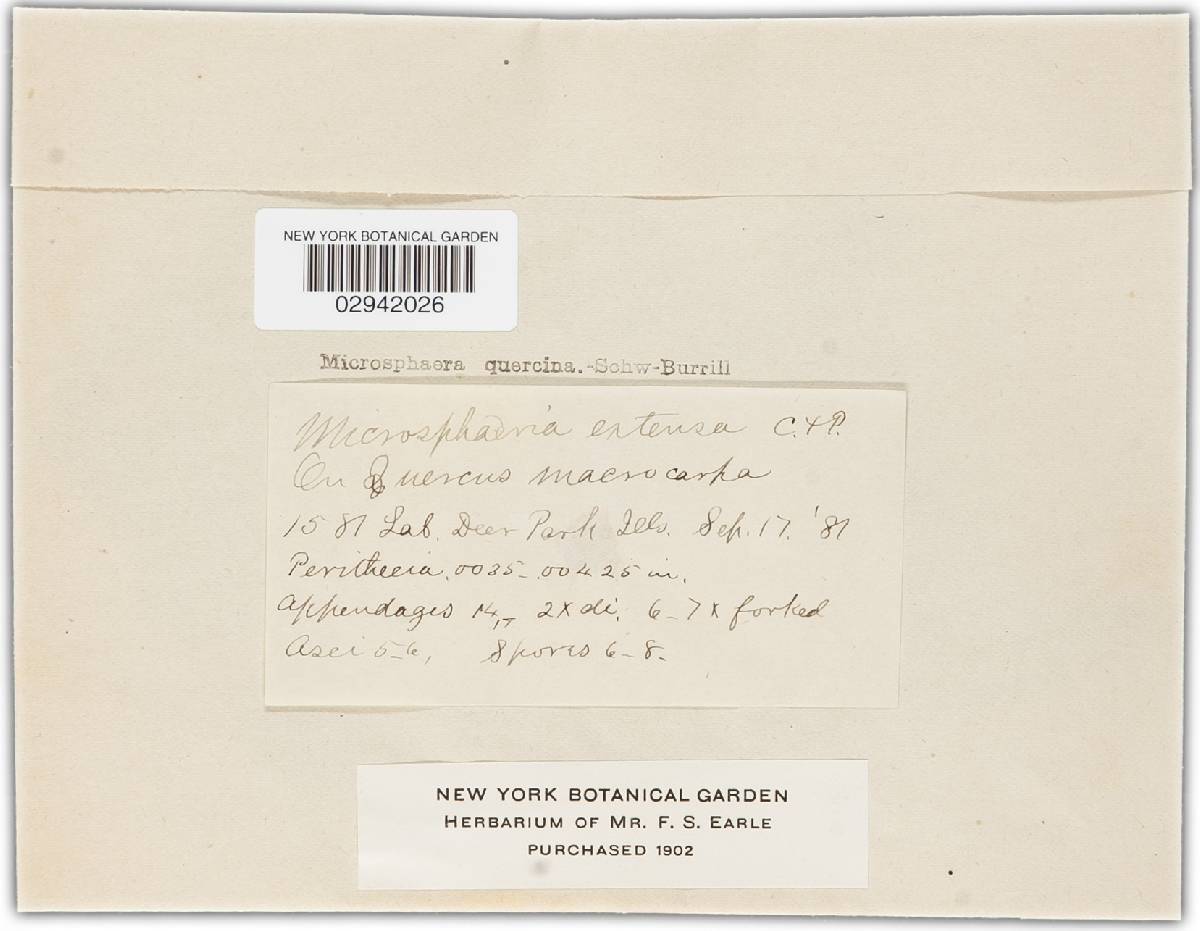 NEW YORK BOTANICAL GARDEN
02942026
Microsphaera quercina.-Schw-Burrill
Microsphaeria extensa C. & P.
On Quercus macrocarpa
1581 Lab. Deer Park Ills. Sep. 17. '81
Perithecia .0035-.00425 in.
Appendages 14,- 2x di. 6-7x forked
Asci 5-6, Spores 6-8.
NEW YORK BOTANICAL GARDEN
HERBARIUM OF MR. F. S. EARLE
PURCHASED 1902